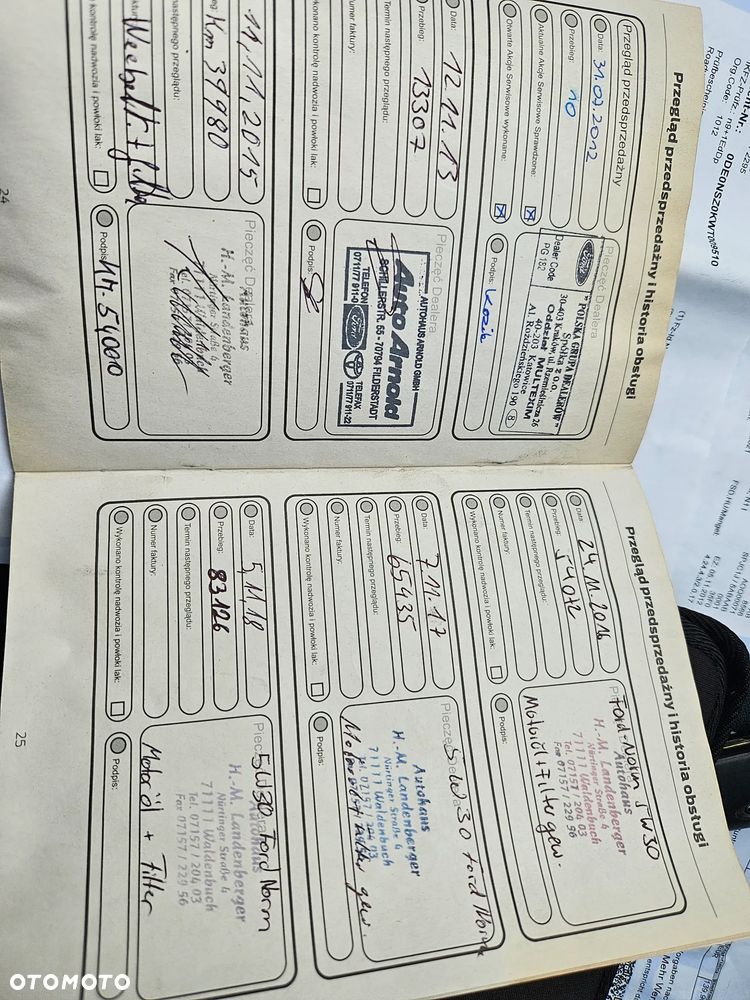 Przegląd przedsprzedażny i historia obsługi
Przegląd przedsprzedażny
Data: 31.07.2012
Przebieg: 10
Aktualne Akcje Serwisowe Sprawdzone:
Otwarte Akcje Serwisowe wykonane:
Pieczęć Dealera
Ford
Dealer Code
PG 182
"POLSKA GRUPA DEALERÓW"
Spółka z o.o.
30-403 Kraków, ul. Rzemieślnicza 26
Oddział MULTEXIM
40-203 Katowice
Al. Roździeńskiego 190
8
Podpis:
Data: 12.11.13
Przebieg: 13307
Termin następnego przeglądu:
Numer faktury:
Wykonano kontrolę nadwozia i powłoki lak:
Pieczęć Dealera
AUTOHAUS ARNOLD GMBH
Auto Arnold
SCHILLERSTR. 55 - 70794 FILDERSTADT
TELEFON
0711/77 911-0
Ford
TELEFAX
0711/77 911-22
Podpis:
11.11.2015
Km 39980
następnego przeglądu:
kontrolę nadwozia i powłoki lak:
Pieczęć Dealera
Autohaus
H.-M. Landenberger
Nürtinger Straße 4
71111 Waldenbuch
Podpis:
24
Przegląd przedsprzedażny i historia obsługi
Data: 24.11.2016
Przebieg: 54072
Termin następnego przeglądu:
Numer faktury:
Wykonano kontrolę nadwozia i powłoki lak:
Ford-Norm 5W30
Autohaus
H.-M. Landenberger
Nürtinger Straße 4
71111 Waldenbuch
Tel. 07157 / 204 03
Fax 07157 / 229 56
Motoröl + Filter gew.
Podpis:
Data: 7.11.17
Przebieg: 65435
Termin następnego przeglądu:
Numer faktury:
Wykonano kontrolę nadwozia i powłoki lak:
5W30 Ford Norm
Autohaus
H.-M. Landenberger
Nürtinger Straße 4
71111 Waldenbuch
Tel. 07157 / 204 03
Podpis:
Data: 5.11.18
Przebieg: 83126
Termin następnego przeglądu:
Numer faktury:
Wykonano kontrolę nadwozia i powłoki lak:
5W30 Ford Norm
Autohaus
H.-M. Landenberger
Nürtinger Straße 4
71111 Waldenbuch
Tel. 07157 / 204 03
Fax 07157 / 229 56
Motoröl + Filter
Podpis:
25
OTOMOTO